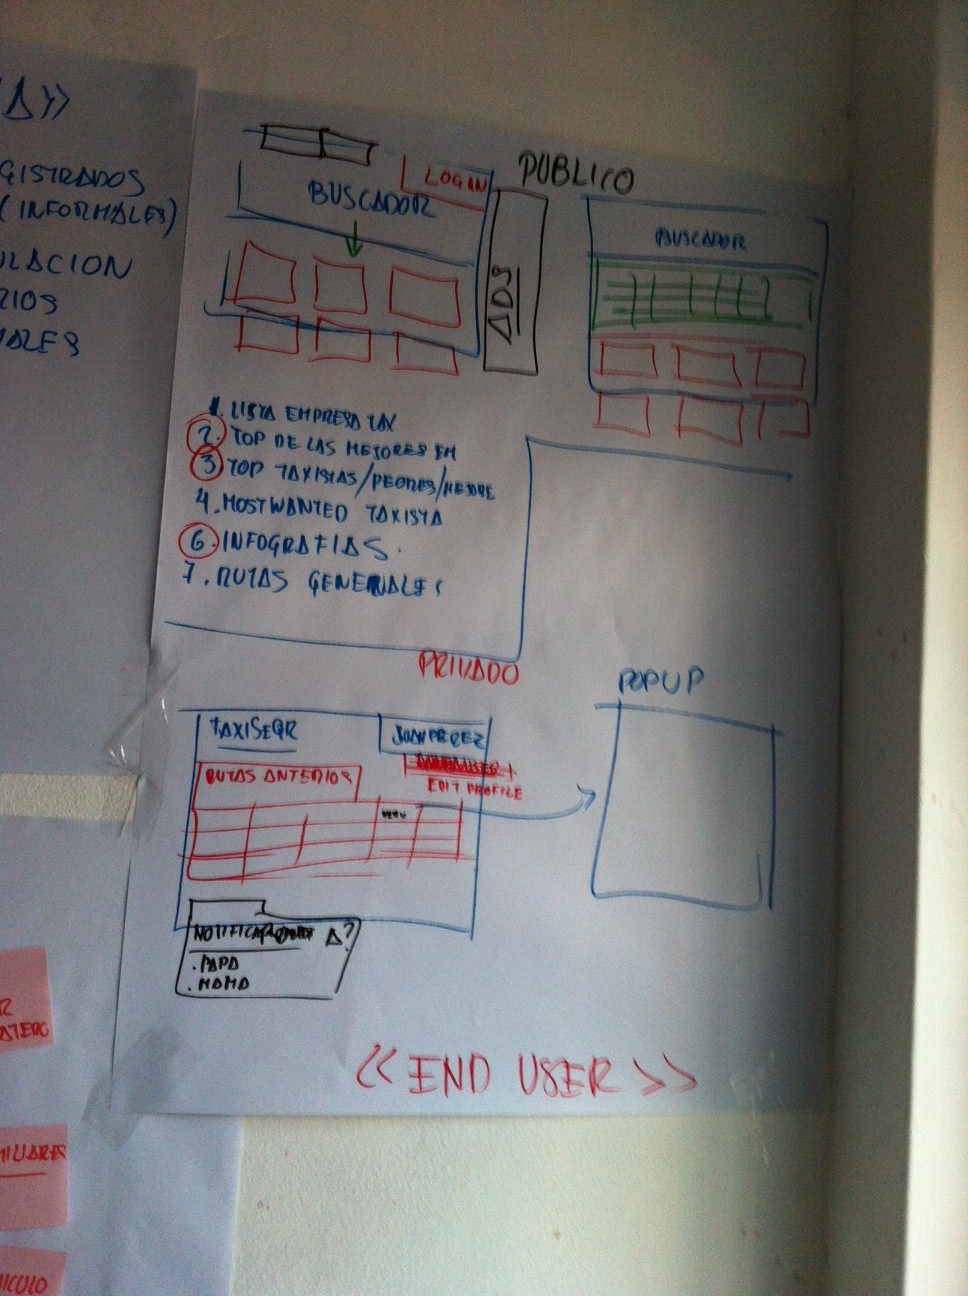 Δ>>
GISTRADOS
(INFORMALES)
ULACION
RIOS
MALES
PUBLICO
LOGIN
BUSCADOR
ADS
BUSCADOR
1. LISTA EMPRESA TAX
2. TOP DE LAS MEJORES EM
3. TOP TAXISTAS/PEORES/MEJORE
4. MOSTWANTED TAXISTA
6. INFOGRAFIAS.
7. RUTAS GENERALES
PRIVADO
POPUP
TAXISEGR
JUAN PEREZ
RUTAS ANTERIOS
EDIT PROFILE
MENU
A?
. PAPA
. MAMA
<< END USER >>
R
ATERO
MILIARES
HICULO